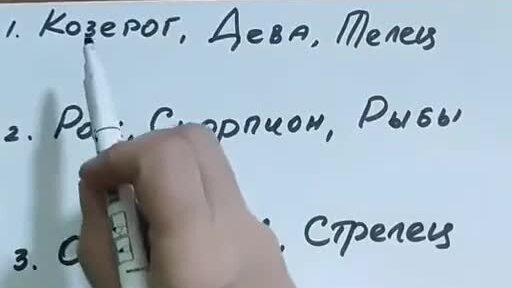 1. Козерог, Дева, Телец
2. Скорпион, Рыбы
3. Стрелец